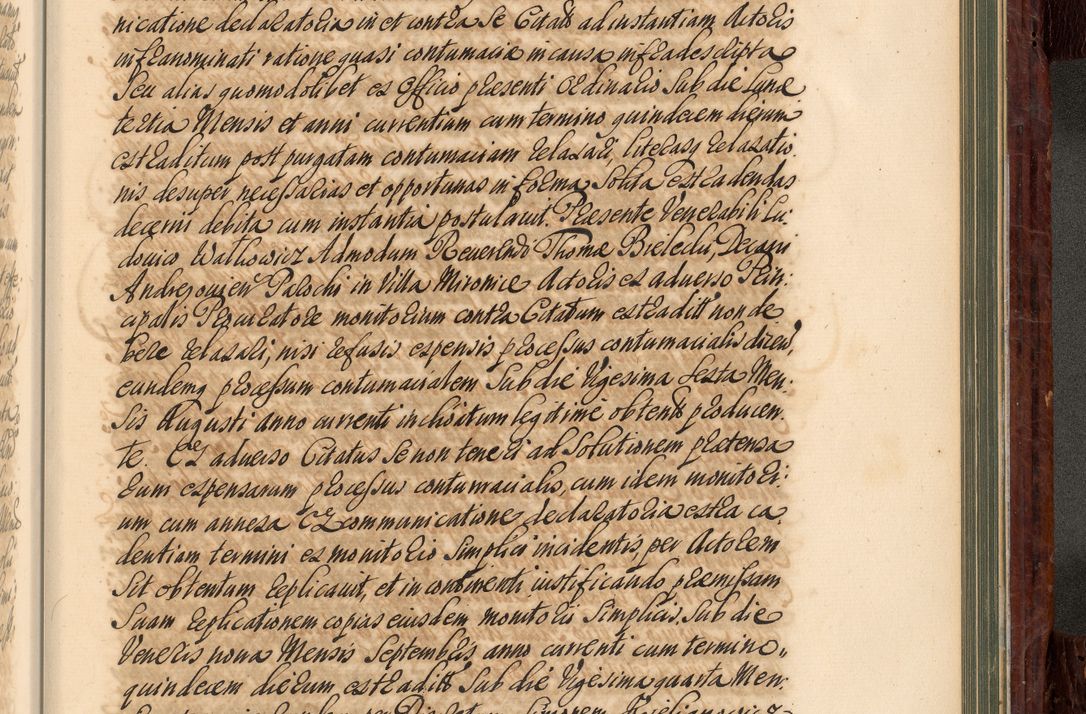 nicatione declaratoria in et contra Se Citatt ad instantiam Actoris
infranominati ratione quasi contumacia in causa infradescripta
Seu alias quomodolibet ex Officio præsenti Ordinario Sub die Lunæ
tertia Mensis et anni currentium cum termino quindecem dierum
extraditum post purgatam contumaciam relaxari, literasq relaxatio
nis desuper necessarias et opportunas in forma Solita extradendas
decerni debita cum instantia postulavit. Præsente Venerabili Lu
dovico Watkowicz Admodum Reverendi Thomæ Bielecki, Decani
Andrejovien Parochi in Villa Mironice Actoris ex adverso Prin:
cipalis Procuratore monitorium contra Citatum extraditt non de
bere relaxari, nisi refusis expensis processus contumacialis dicen,
eundemq processum contumacialem Sub die Vigesima Sexta Men:
sis Augusti anno currenti inclusitum legitime obtentt producen:
te. Ex adverso Citatus Se non teneri ad Solutionem prætensa
rum expensarum processus contumacialis, cum idem monitori:
um cum annexa Excommunicatione declaratoria extra ca,
dentiam termini ex monitorio Simplici incidentis, per Actorem
Sit obtentum replicavit, et in continenti iustificando præmissam
Suam replicationem copias eiusdem monitorii Simplicis, Sub die
Veneris nona Mensis Septembris anno currenti cum termino,,
quindecem dierum, extraditt Sub die Vigesima quarta Men: